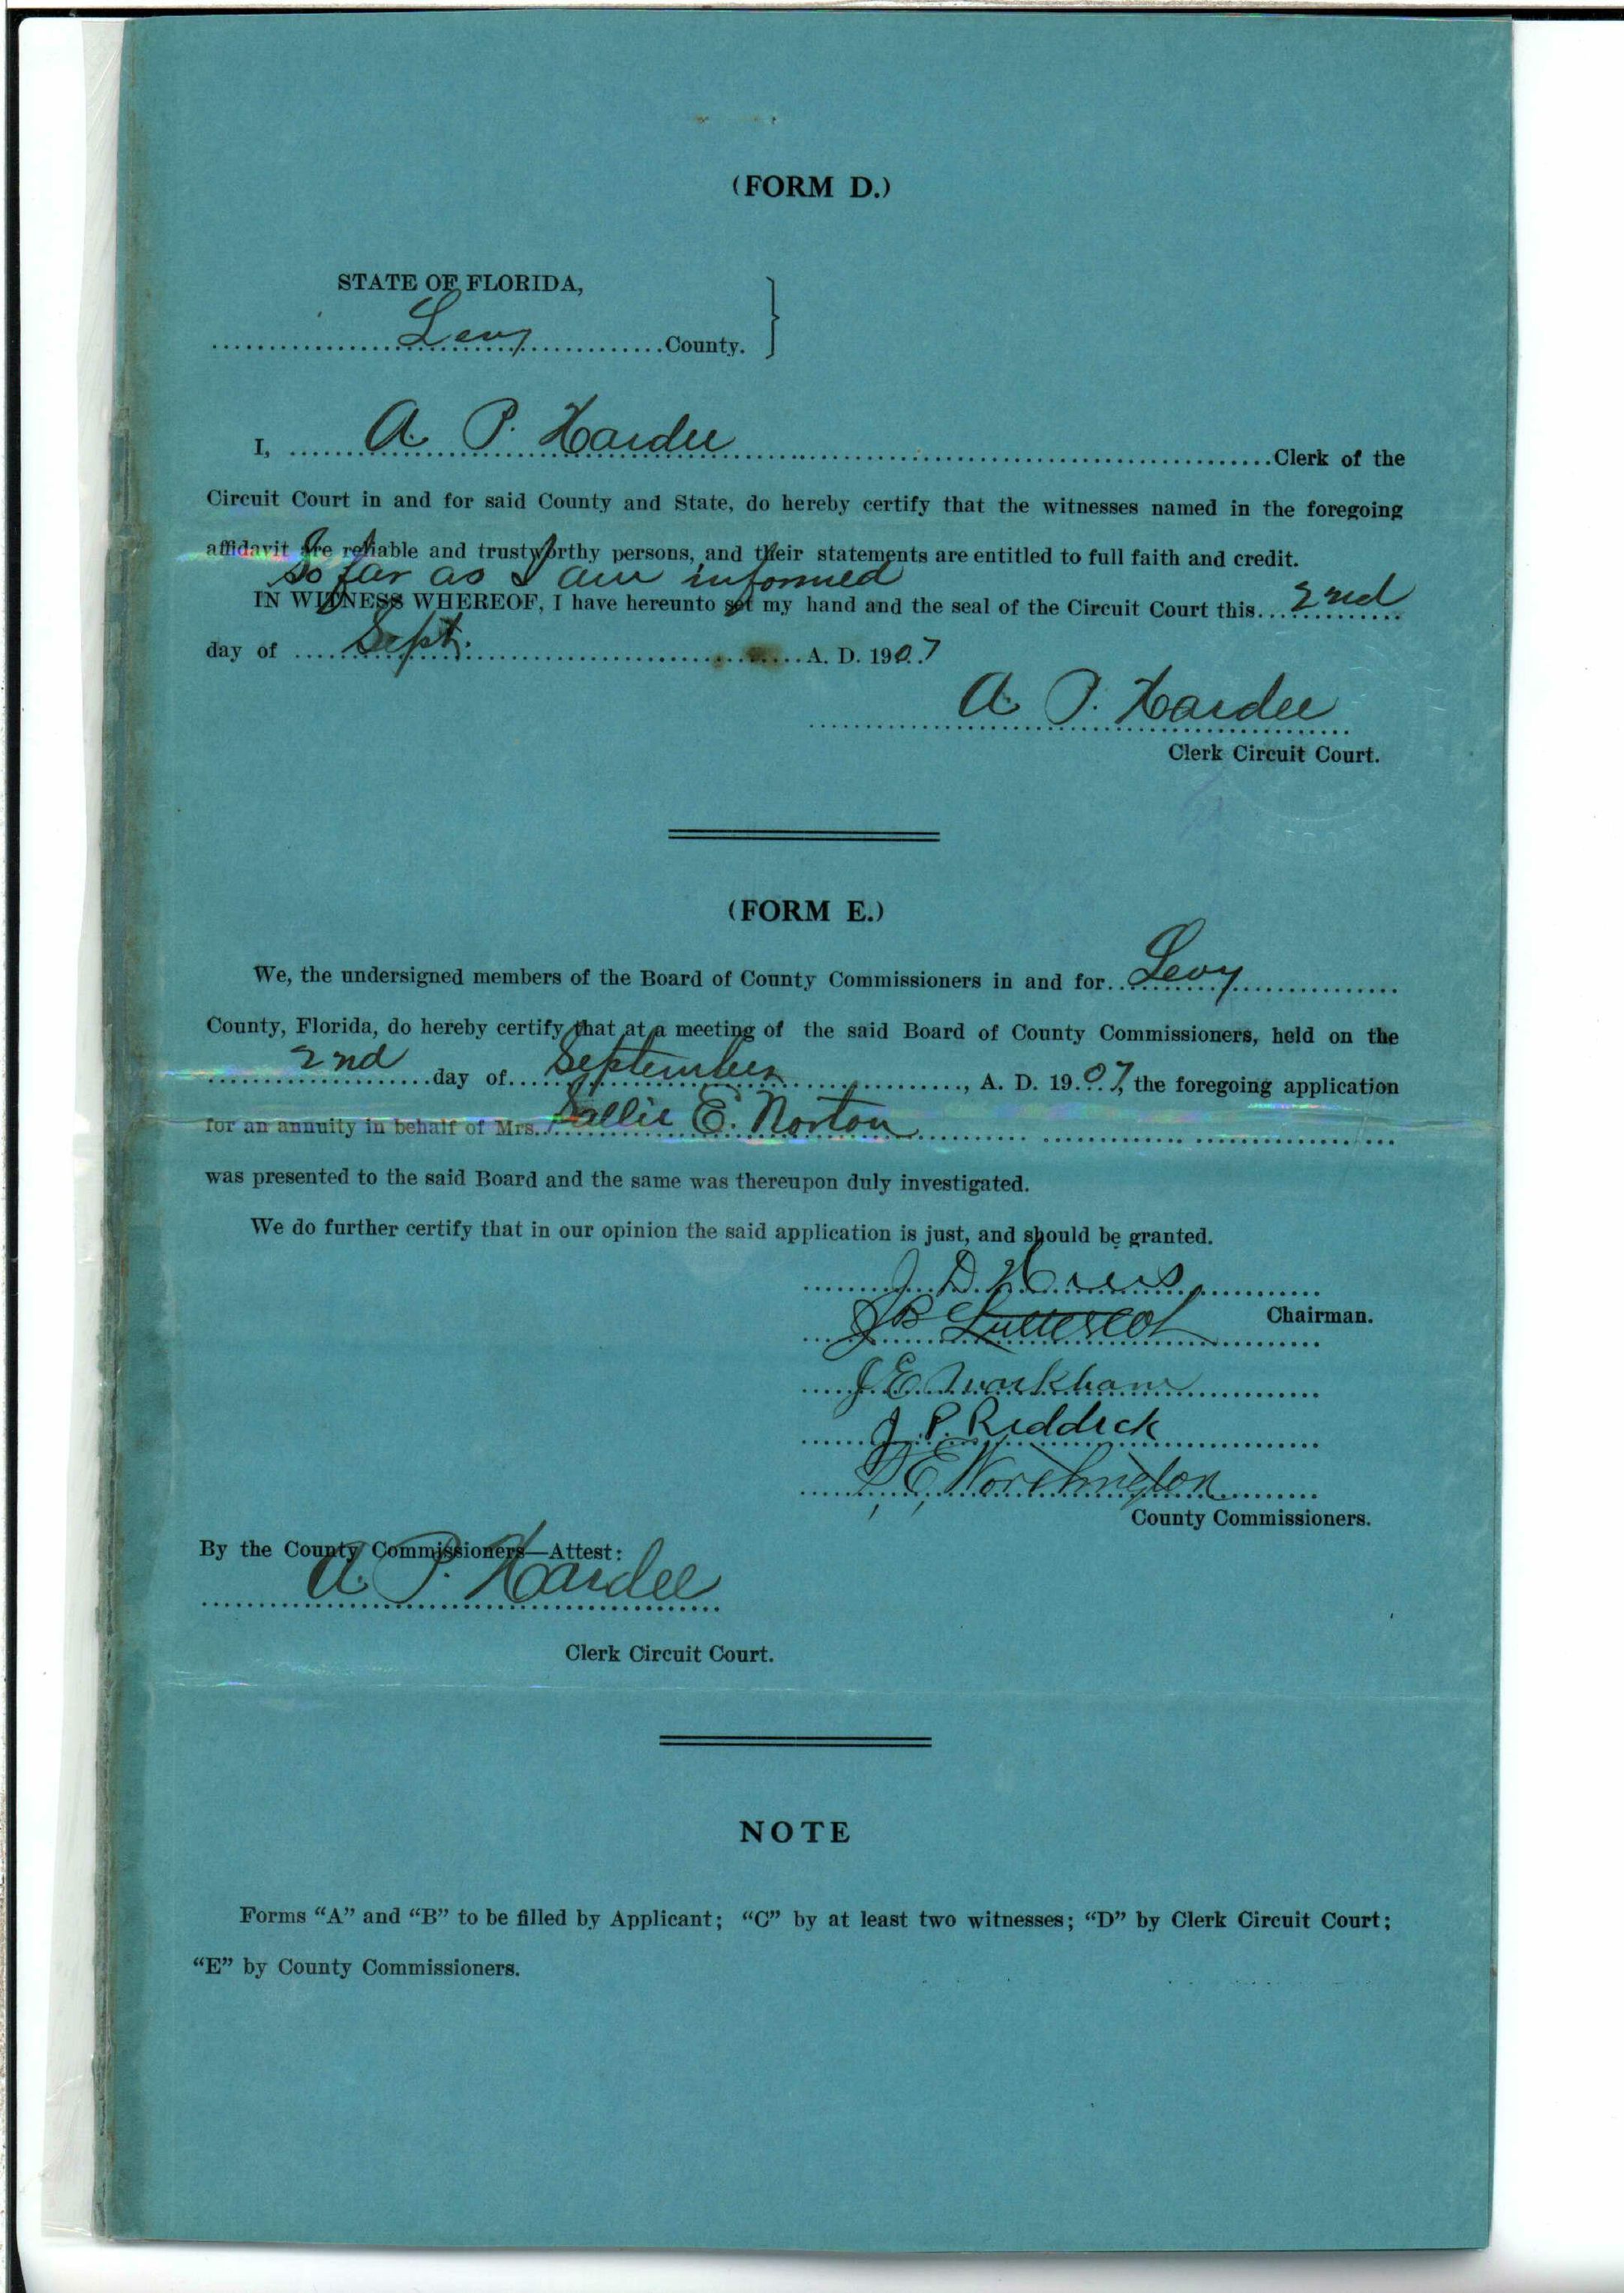 (FORM D.)
STATE OF FLORIDA,
Levy County.
I, A. P. Hardee Clerk of the
Circuit Court in and for said County and State, do hereby certify that the witnesses named in the foregoing
affidavit are reliable and trustworthy persons, and their statements are entitled to full faith and credit.
so far as I am informed
IN WITNESS WHEREOF, I have hereunto set my hand and the seal of the Circuit Court this 2nd
day of Sept. A. D. 1907
A. P. Hardee
Clerk Circuit Court.
(FORM E.)
We, the undersigned members of the Board of County Commissioners in and for Levy
County, Florida, do hereby certify that at a meeting of the said Board of County Commissioners, held on the
2nd day of September, A. D. 1907, the foregoing application
for an annuity in behalf of Mrs. Sallie E. Norton
was presented to the said Board and the same was thereupon duly investigated.
We do further certify that in our opinion the said application is just, and should be granted.
J D
Chairman.
J B
J E Markham
J. P. Reddick
E Worthington
County Commissioners.
By the County Commissioners—Attest:
A. P. Hardee
Clerk Circuit Court.
NOTE
Forms "A" and "B" to be filled by Applicant; "C" by at least two witnesses; "D" by Clerk Circuit Court;
"E" by County Commissioners.